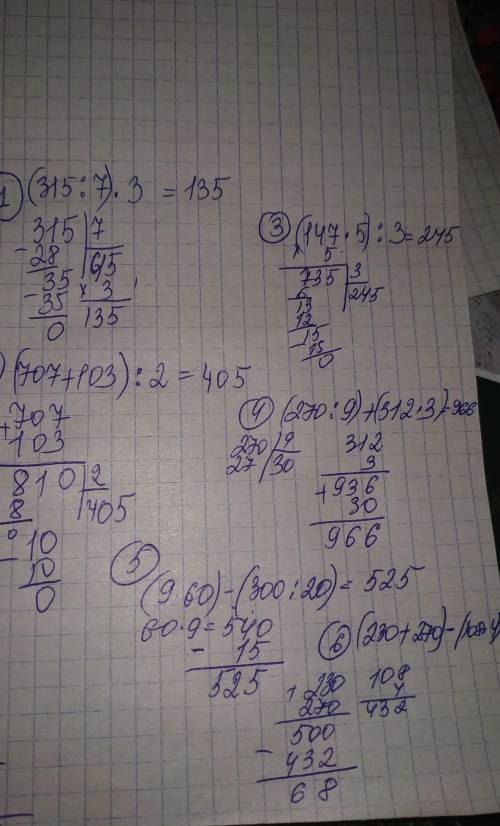 1 (315:7)·3 = 135
315 | 7
- 28
35
- 35
0
45
× 3
135
(707+103):2=405
+ 707
103
810 | 2
8
405
0
- 10
10
0
3 (147·5):3=245
× 5
735 | 3
6
245
13
12
- 15
15
0
4 (270:9)+(312·3)=966
270 | 9
27
30
312
3
+ 936
30
966
5
(9·60)-(300:20)=525
60·9=540
- 15
525
6 (230+270)-(108·4)
+ 230
270
500
- 432
68
108
4
432